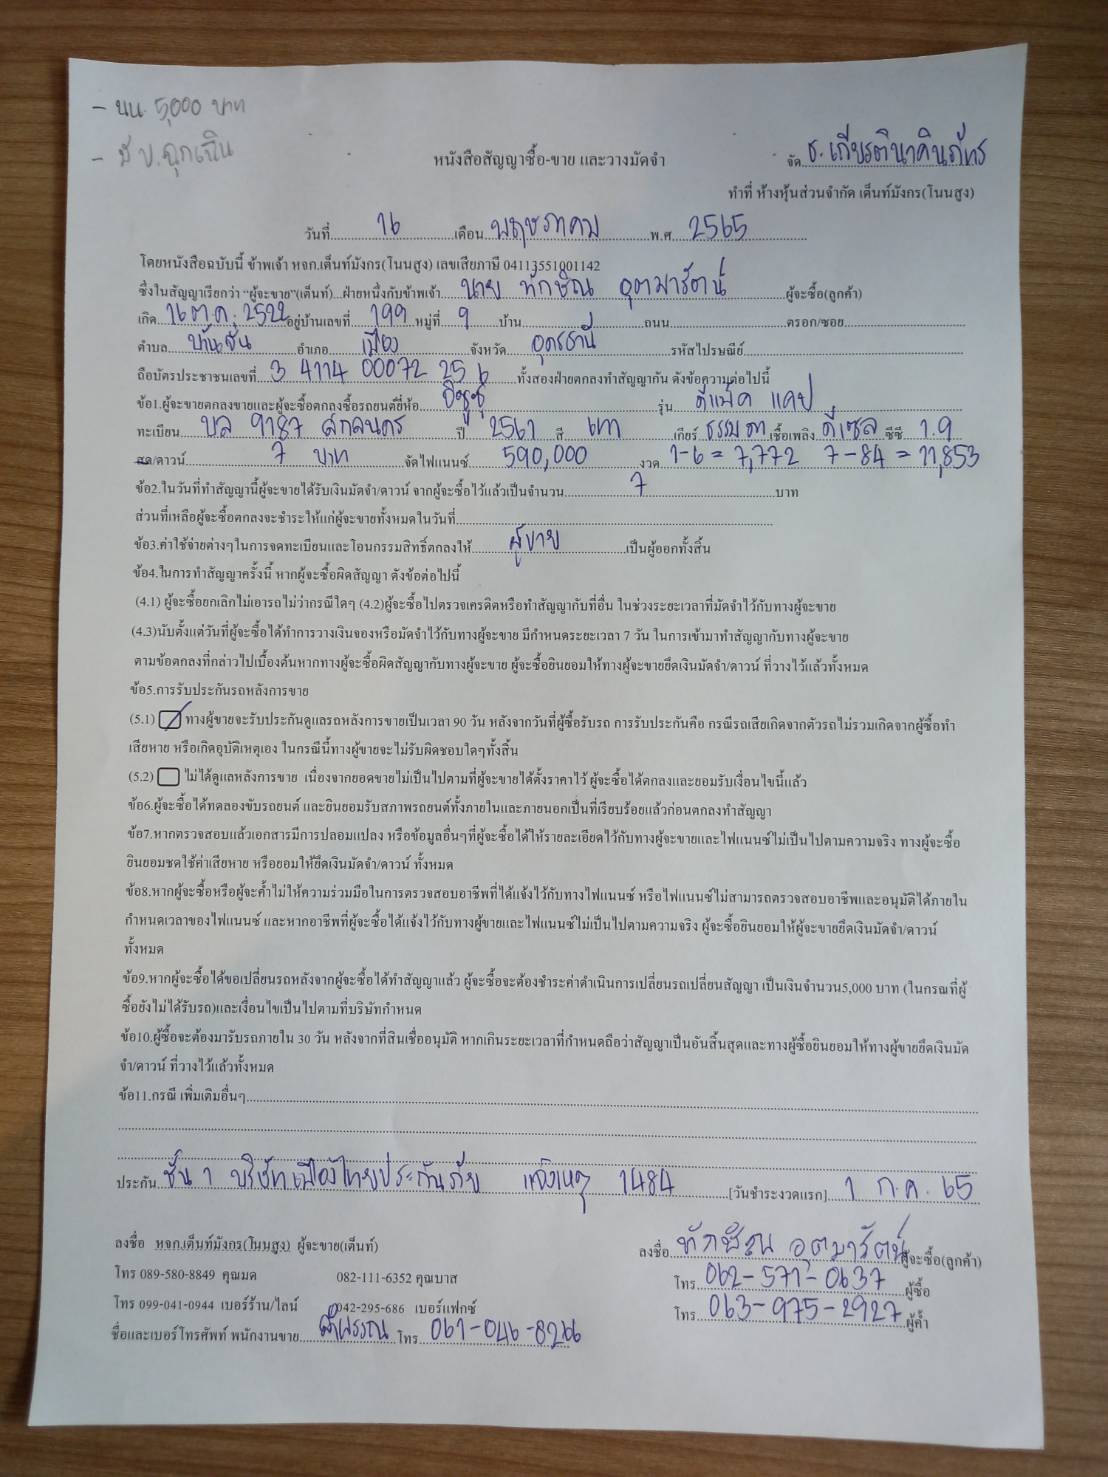 - นน. 5,000 บาท
- มี ข.ฉุกเฉิน
จัด ธ.เกียรตินาคินภัทร
หนังสือสัญญาซื้อ-ขาย และวางมัดจำ
ทำที่ ห้างหุ้นส่วนจำกัด เต็นท์มังกร(โนนสูง)
วันที่ 16 เดือน พฤษภาคม พ.ศ 2565
โดยหนังสือฉบับนี้ ข้าพเจ้า หจก.เต็นท์มังกร(โนนสูง) เลขเสียภาษี 04113551001142
ซึ่งในสัญญาเรียกว่า "ผู้จะขาย"(เต็นท์)...ฝ่ายหนึ่งกับข้าพเจ้า นาย ทักษิณ อุตมารัตน์ ผู้จะซื้อ(ลูกค้า)
เกิด 16 ต.ค. 2522 อยู่บ้านเลขที่ 199 หมู่ที่ 9 บ้าน ถนน ตรอก/ซอย
ตำบล บ้านจั่น อำเภอ เมือง จังหวัด อุดรธานี รหัสไปรษณีย์
ถือบัตรประชาชนเลขที่ 3 4114 00072 25 6 ทั้งสองฝ่ายตกลงทำสัญญากัน ดังข้อความต่อไปนี้
ข้อ1.ผู้จะขายตกลงขายและผู้จะซื้อตกลงซื้อรถยนต์ยี่ห้อ อีซูซุ รุ่น ดีแม็ค แคป
ทะเบียน บล 9187 สกลนคร ปี 2561 สี เทา เกียร์ ธรรมดา เชื้อเพลิง ดีเซล ซีซี 1.9
สด/ดาวน์ 7 บาท จัดไฟแนนซ์ 590,000 งวด 1-6 = 7,772 7-84 = 11,853
ข้อ2.ในวันที่ทำสัญญานี้ผู้จะขายได้รับเงินมัดจำ/ดาวน์ จากผู้จะซื้อไว้แล้วเป็นจำนวน 7 บาท
ส่วนที่เหลือผู้จะซื้อตกลงจะชำระให้แก่ผู้จะขายทั้งหมดในวันที่
ข้อ3.ค่าใช้จ่ายต่างๆในการจดทะเบียนและโอนกรรมสิทธิ์ตกลงให้ ผู้ขาย เป็นผู้ออกทั้งสิ้น
ข้อ4.ในการทำสัญญาครั้งนี้ หากผู้จะซื้อผิดสัญญา ดังข้อต่อไปนี้
(4.1) ผู้จะซื้อยกเลิกไม่เอารถไม่ว่ากรณีใดๆ (4.2)ผู้จะซื้อไปตรวจเครดิตหรือทำสัญญากับที่อื่น ในช่วงระยะเวลาที่มัดจำไว้กับทางผู้จะขาย
(4.3)นับตั้งแต่วันที่ผู้จะซื้อได้ทำการวางเงินจองหรือมัดจำไว้กับทางผู้จะขาย มีกำหนดระยะเวลา 7 วัน ในการเข้ามาทำสัญญากับทางผู้จะขาย
ตามข้อตกลงที่กล่าวไปเบื้องต้นหากทางผู้จะซื้อผิดสัญญากับทางผู้จะขาย ผู้จะซื้อยินยอมให้ทางผู้จะขายยึดเงินมัดจำ/ดาวน์ ที่วางไว้แล้วทั้งหมด
ข้อ5.การรับประกันรถหลังการขาย
(5.1) ทางผู้ขายจะรับประกันดูแลรถหลังการขายเป็นเวลา 90 วัน หลังจากวันที่ผู้ซื้อรับรถ การรับประกันคือ กรณีรถเสียเกิดจากตัวรถไม่รวมเกิดจากผู้ซื้อทำ
เสียหาย หรือเกิดอุบัติเหตุเอง ในกรณีนี้ทางผู้ขายจะไม่รับผิดชอบใดๆทั้งสิ้น
(5.2) ไม่ได้ดูแลหลังการขาย เนื่องจากยอดขายไม่เป็นไปตามที่ผู้จะขายได้ตั้งราคาไว้ ผู้จะซื้อได้ตกลงและยอมรับเงื่อนไขนี้แล้ว
ข้อ6.ผู้จะซื้อได้ทดลองขับรถยนต์ และยินยอมรับสภาพรถยนต์ทั้งภายในและภายนอกเป็นที่เรียบร้อยแล้วก่อนตกลงทำสัญญา
ข้อ7.หากตรวจสอบแล้วเอกสารมีการปลอมแปลง หรือข้อมูลอื่นๆที่ผู้จะซื้อได้ให้รายละเอียดไว้กับทางผู้จะขายและไฟแนนซ์ไม่เป็นไปตามความจริง ทางผู้จะซื้อ
ยินยอมชดใช้ค่าเสียหาย หรือยอมให้ยึดเงินมัดจำ/ดาวน์ ทั้งหมด
ข้อ8.หากผู้จะซื้อหรือผู้จะค้ำไม่ให้ความร่วมมือในการตรวจสอบอาชีพที่ได้แจ้งไว้กับทางไฟแนนซ์ หรือไฟแนนซ์ไม่สามารถตรวจสอบอาชีพและอนุมัติได้ภายใน
กำหนดเวลาของไฟแนนซ์ และหากอาชีพที่ผู้จะซื้อได้แจ้งไว้กับทางผู้ขายและไฟแนนซ์ไม่เป็นไปตามความจริง ผู้จะซื้อยินยอมให้ผู้จะขายยึดเงินมัดจำ/ดาวน์
ทั้งหมด
ข้อ9.หากผู้จะซื้อได้ขอเปลี่ยนรถหลังจากผู้จะซื้อได้ทำสัญญาแล้ว ผู้จะซื้อจะต้องชำระค่าดำเนินการเปลี่ยนรถเปลี่ยนสัญญา เป็นเงินจำนวน5,000 บาท (ในกรณที่ผู้
ซื้อยังไม่ได้รับรถ)และเงื่อนไขเป็นไปตามที่บริษัทกำหนด
ข้อ10.ผู้ซื้อจะต้องมารับรถภายใน 30 วัน หลังจากที่สินเชื่ออนุมัติ หากเกินระยะเวลาที่กำหนดถือว่าสัญญาเป็นอันสิ้นสุดและทางผู้ซื้อยินยอมให้ทางผู้ขายยึดเงินมัด
จำ/ดาวน์ ที่วางไว้แล้วทั้งหมด
ข้อ11.กรณี เพิ่มเติมอื่นๆ
ประกัน ชั้น 1 บริษัท เมืองไทยประกันภัย แจ้งเหตุ 1484 [วันชำระงวดแรก] 1 ก.ค. 65
ลงชื่อ หจก.เต็นท์มังกร(โนนสูง) ผู้จะขาย(เต็นท์)
ลงชื่อ ทักษิณ อุตมารัตน์ ผู้จะซื้อ(ลูกค้า)
โทร 089-580-8849 คุณมด 082-111-6352 คุณบาส
โทร 062-571-0637 ผู้ซื้อ
โทร 099-041-0944 เบอร์ร้าน/ไลน์ 042-295-686 เบอร์แฟกซ์
โทร 063-975-2927 ผู้ค้ำ
ชื่อและเบอร์โทรศัพท์ พนักงานขาย โทร 061-046-8266